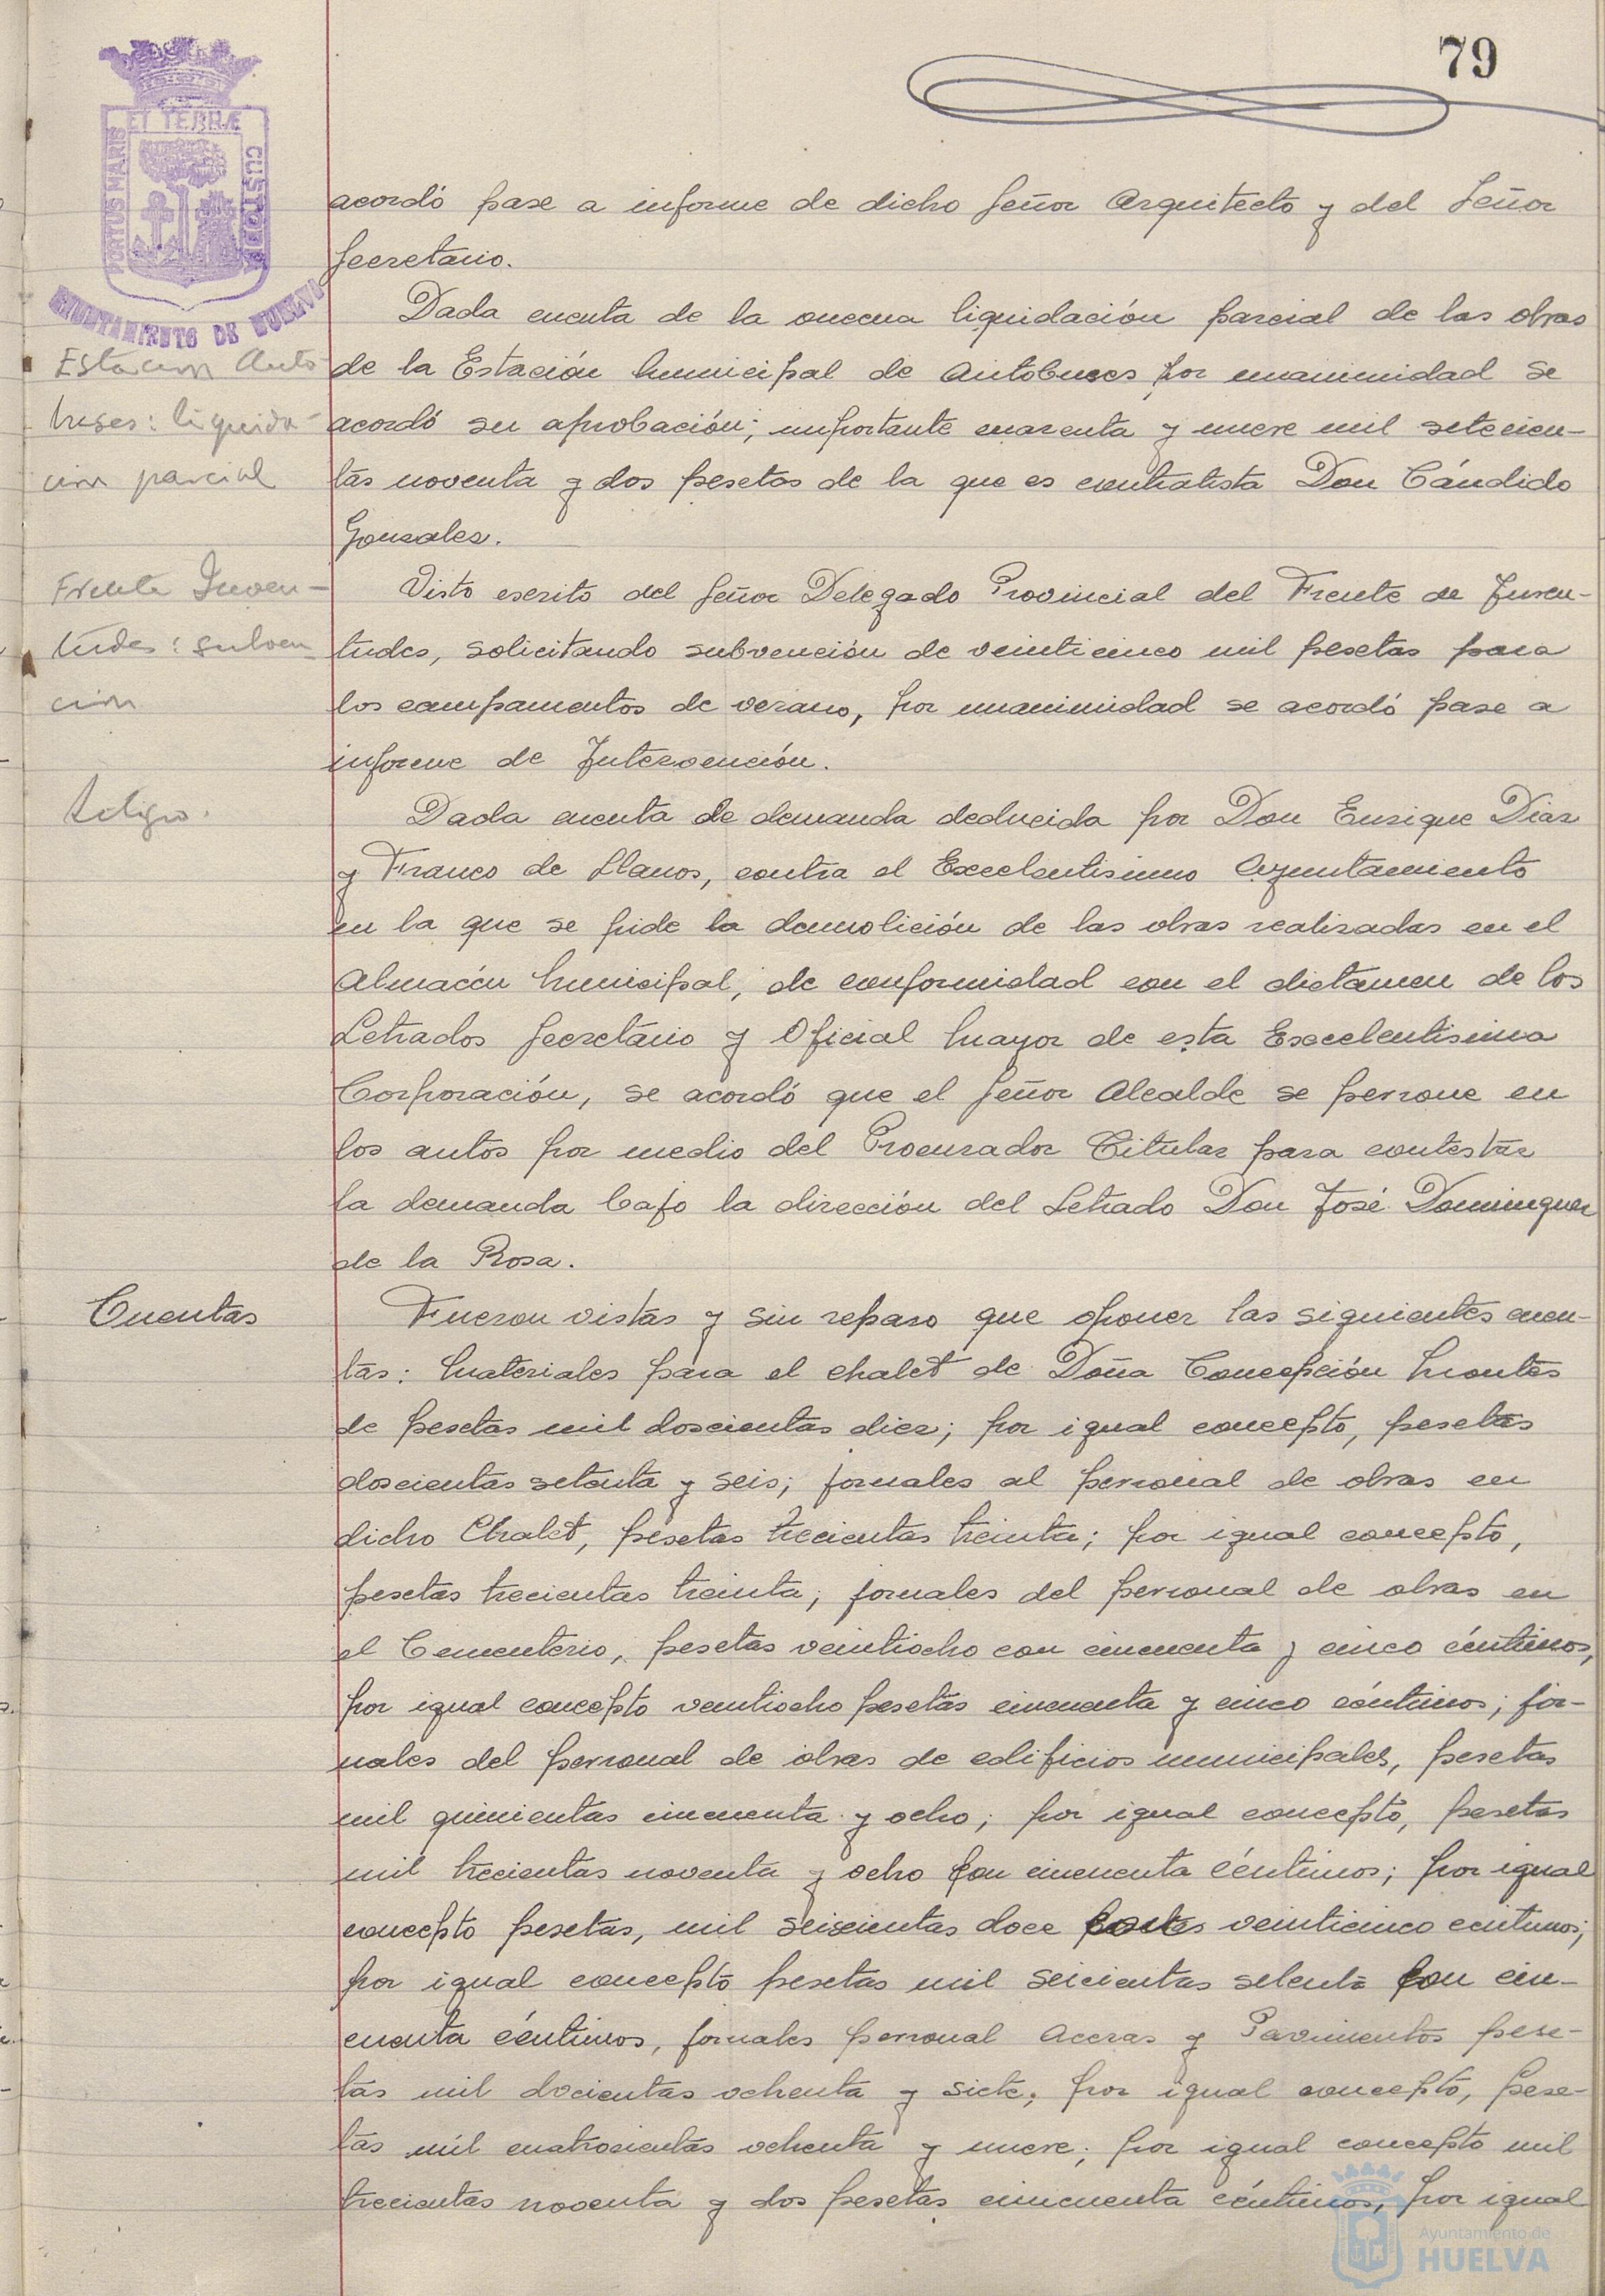 79
PORTUS MARIS ET TERRÆ CUSTODIA
AYUNTAMIENTO DE HUELVA
acordó pase a informe de dicho Señor Arquitecto y del Señor
Secretario.
Dada cuenta de la onecena liquidación parcial de las obras
Estacion Auto
de la Estación Municipal de Autobuses por unanimidad se
buses: liquida-
acordó su aprobación; importante cuarenta y nueve mil setecien-
cion parcial
tas noventa y dos pesetas de la que es contratista Don Cándido
Gonzalez.
Frente Juven-
Visto escrito del Señor Delegado Provincial del Frente de Juven-
tudes: subven-
tudes, solicitando subvención de veinticinco mil pesetas para
cion
los campamentos de verano, por unanimidad se acordó pase a
informe de Intervención.
Litigio.
Dada cuenta de demanda deducida por Don Enrique Diaz
y Franco de Llanos, contra el Excelentisimo Ayuntamiento
en la que se pide la demolición de las obras realizadas en el
Almacén Municipal, de conformidad con el dictámen de los
Letrados Secretario y Oficial Mayor de esta Excelentisima
Corporación, se acordó que el Señor Alcalde se persone en
los autos por medio del Procurador Titular para contestar
la demanda bajo la dirección del Letrado Don José Dominguez
de la Rosa.
Cuentas
Fueron vistas y sin reparo que oponer las siguientes cuen-
tas: Materiales para el chalet de Doña Concepción Montes
de pesetas mil doscientas diez; por igual concepto, pesetas
doscientas setenta y seis; jornales al personal de obras en
dicho Chalet, pesetas trecientas treinta; por igual concepto,
pesetas trecientas treinta; jornales del personal de obras en
el Cementerio, pesetas veintiocho con cincuenta y cinco céntimos,
por igual concepto veintiocho pesetas cincuenta y cinco céntimos; jor-
nales del personal de obras de edificios municipales, pesetas
mil quinientas cincuenta y ocho; por igual concepto, pesetas
mil trecientas noventa y ocho con cincuenta céntimos; por igual
concepto pesetas, mil seiscientas doce veinticinco centimos;
por igual concepto pesetas mil seicientas setenta con cin-
cuenta céntimos, jornales personal Aceras y Pavimentos pese-
tas mil docientas ochenta y siete; por igual concepto, pese-
tas mil cuatrocientas ochenta y nueve; por igual concepto mil
trecientas noventa y dos pesetas cincuenta céntimos, por igual
Ayuntamiento de
HUELVA